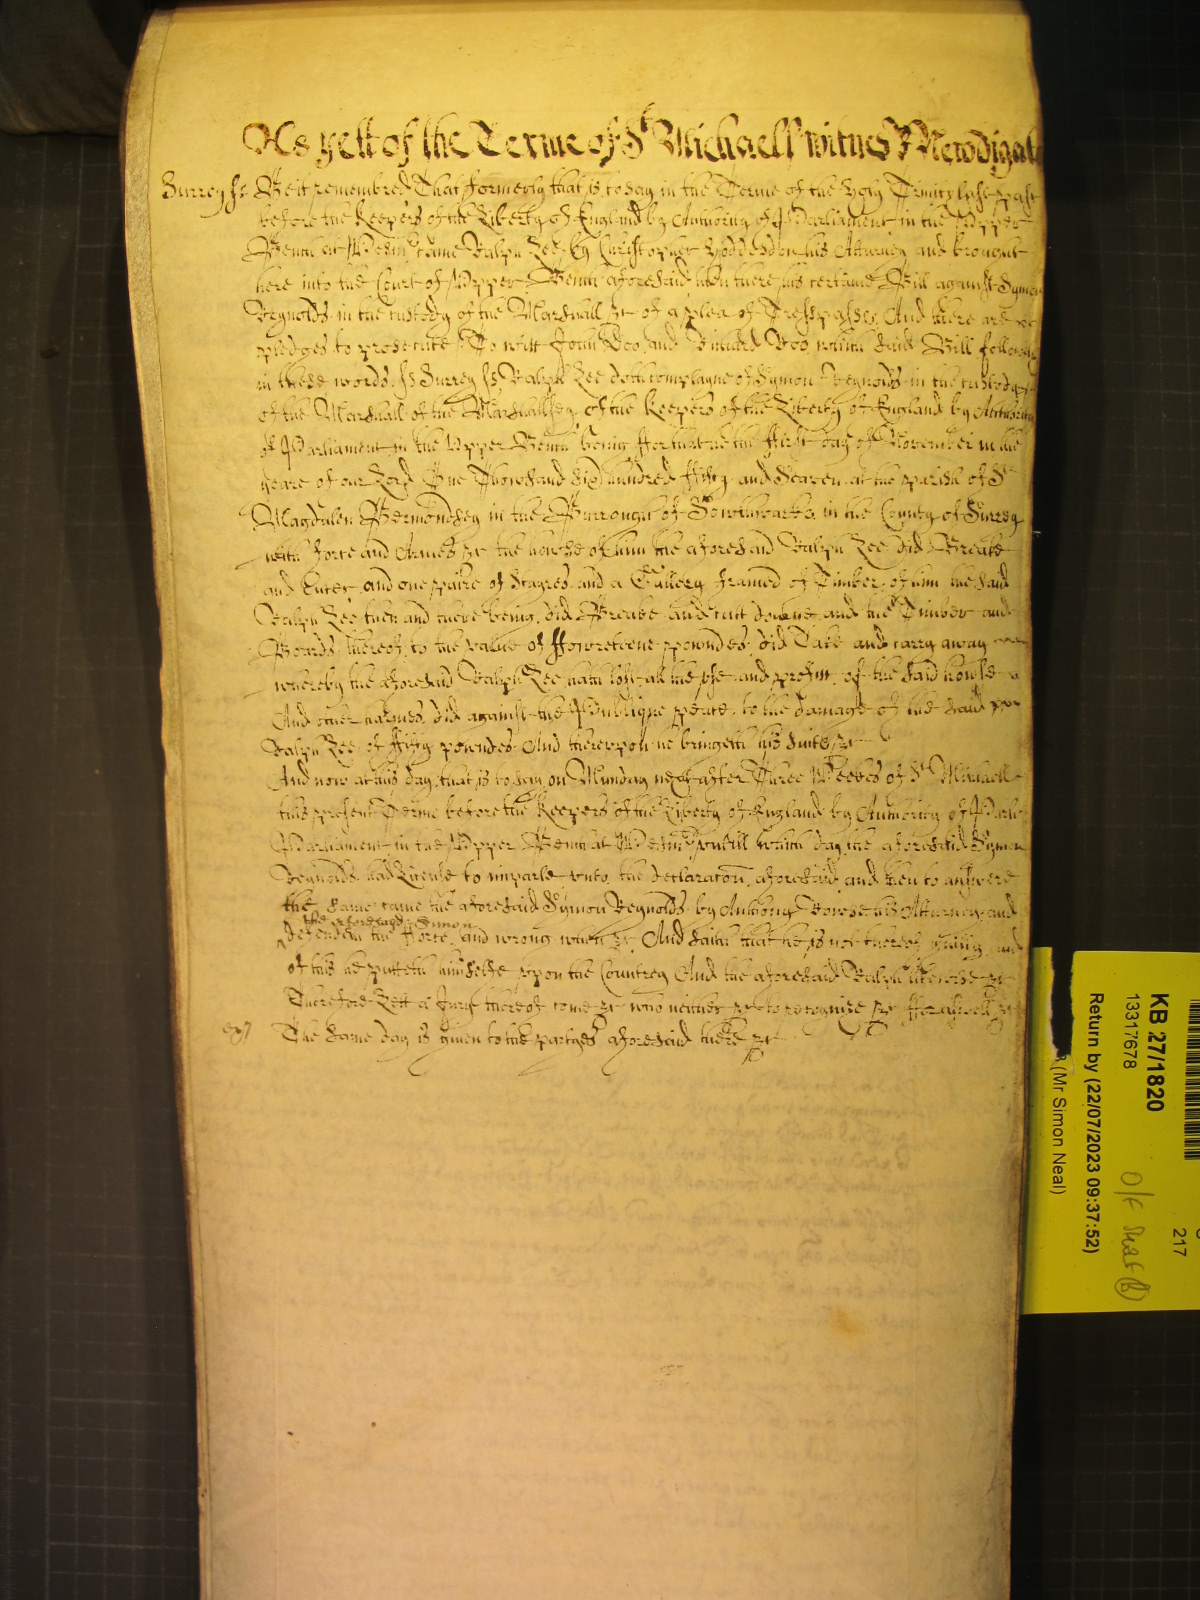 As yett of the Terme of St Michaell witnes R Newdigat
Surrey ss Be it remembred That formerly that is to say in the Terme of the Holy Trinity last past
before the Keepers of the Liberty of England by Authority of Parliament in the Vpper
Bench at Westmr came Ralph Lee by Christopher Hoddesdon his Atturney and brought
here into the Court of Vpper Bench aforesaid then there his certaine Bill against Symon
Reynolds in the custody of the Marshall &c of a plea of Tresspasse And there are
pledges to prosecute To witt John Doo and Richard Roo which said Bill followeth
in these words ss Surrey ss Ralph Lee doth complayne of Symon Reynolds in the custody
of the Marshall of the Marshallsey of the Keepers of the Liberty of England by Authority
of Parliament in the Vpper Bench being For that he the First day of November in the
yeare of our Lord One Thowsand Six hundred Fifty and Seaven at the parish of St
Magdalen Bermondsey in the Burrough of Southwarke in the County of Surrey
with Force and Armes &c the howse of him the aforesaid Ralph Lee did Breake
and Enter and one paire of Stayres and a Gallery framed of Timber of him the said
Ralph Lee then and there being did Breake and cutt downe and the Timber and
Boards thereof to the value of Fowreteene powndes did Take and carry away
whereby the aforesaid Ralph Lee hath lost all the vse and profitt of the said howse
And other harmes did against the Publique peace to the damage of the said
Ralph Lee of Fifty powndes And therevpon he bringeth his suite &c
And now at this day that is to say on Munday next after Three Weekes of St Michaell
this present Terme before the Keepers of the Liberty of England by Authority of
Parliament in the Vpper Bench at Westmr vntill which day the aforesaid Symon
Reynolds had License to imparle vnto the declaracon aforesaid and then to answere
the same came the aforesaid Symon Reynolds by Anthony Rowse his Atturney and
the aforesaid Simon
defendeth the Force and wrong when &c And saith that he is not thereof guilty and
of this he putteth himselfe vpon the Countrey And the aforesaid Ralph likewise &c
Therefore Lett a Jury thereof come &c who neither &c to recognize &c Foraswell &c
The same day is given to the partyes aforesaid there &c
KB 27/1820
13317678
Return by (22/07/2023 09:37:52)
(Mr Simon Neal)
217